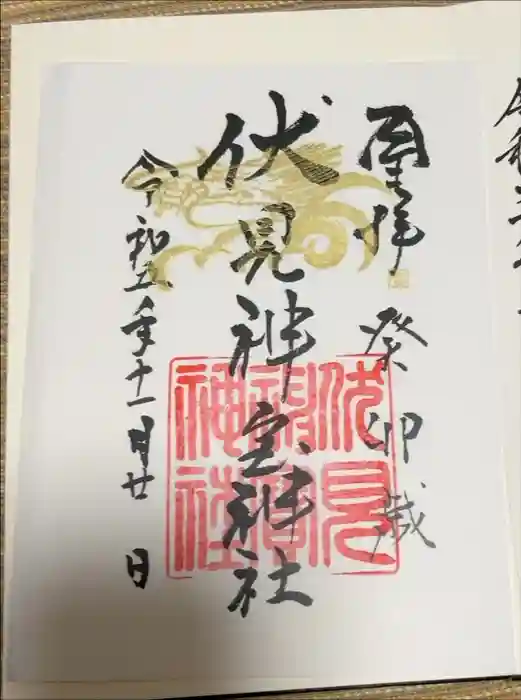 拝 癸卯歳
伏見神宝神社
令和五年十一月廿 日
伏見
神寶
神社